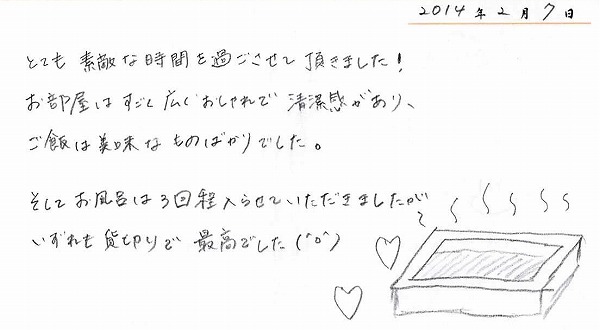 2014年2月7日
とても素敵な時間を過ごさせて頂きました!
お部屋はすごく広くおしゃれで清潔感があり、
ご飯は美味なものばかりでした。
そしてお風呂は3回程入らせていただきましたが
いずれも貸切りで最高でした(^o^)